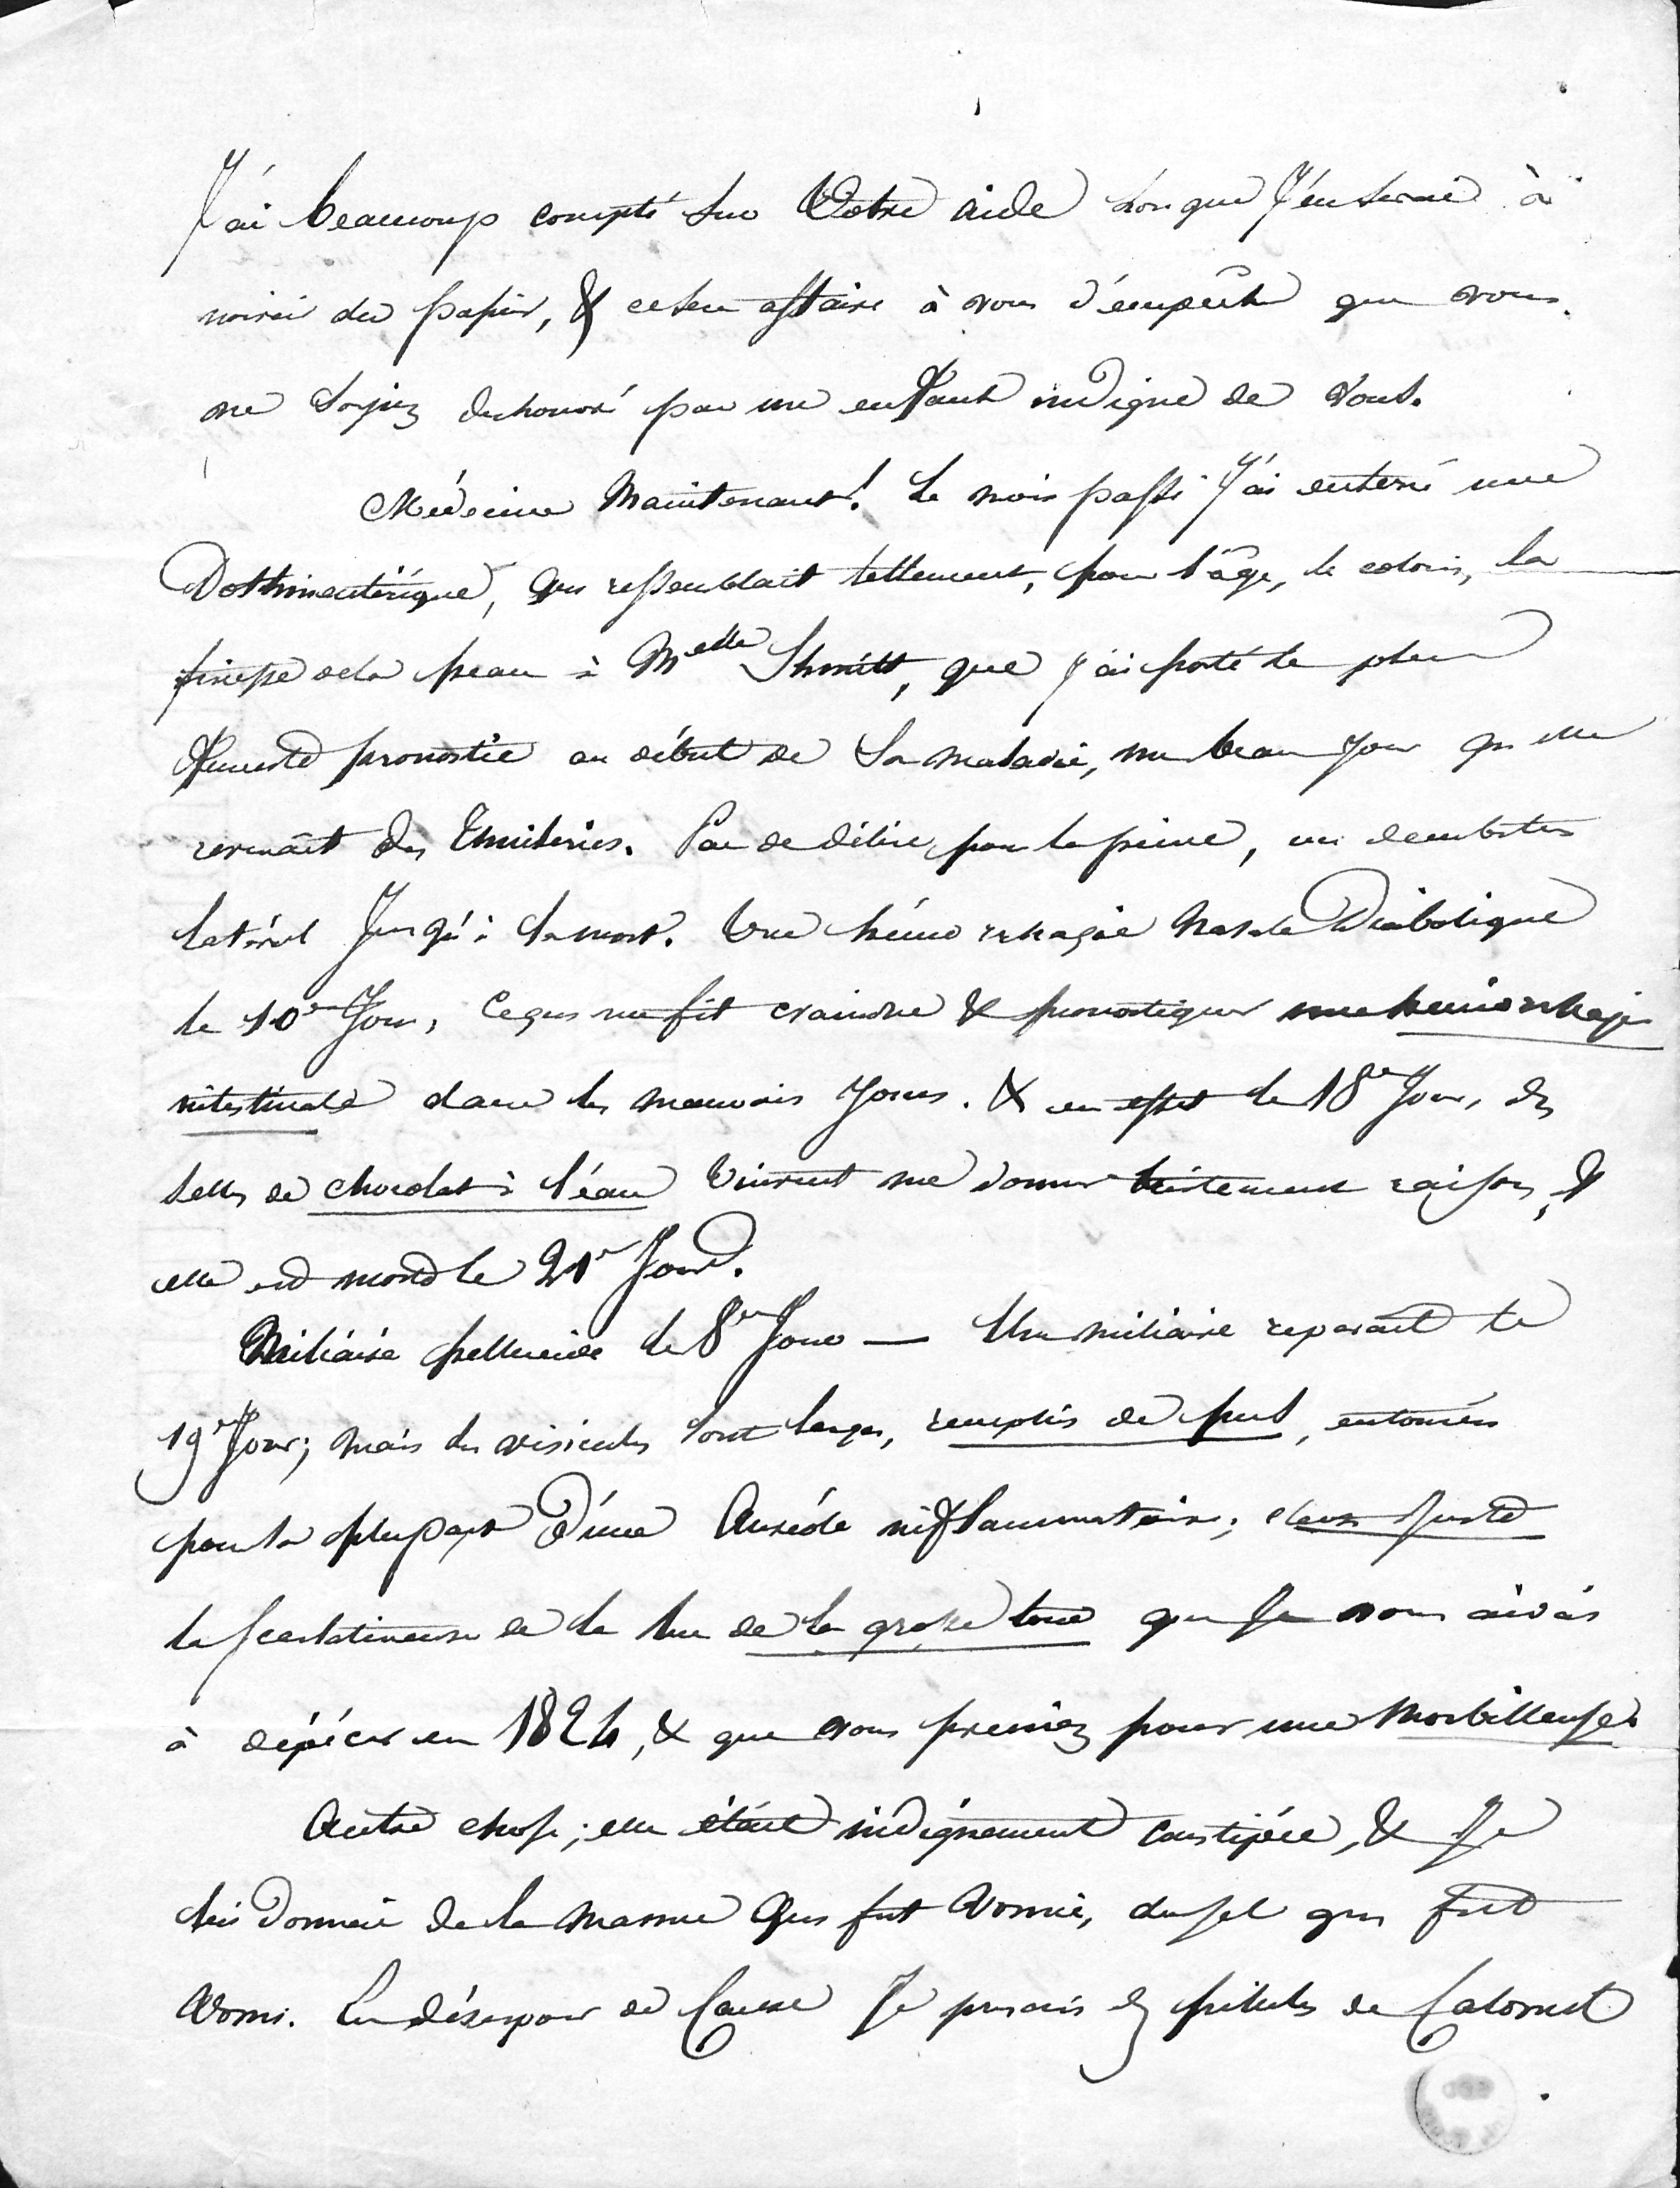 J'ai beaucoup compté sur Votre aide lorsque J'en serai à
noircir du papier, & ce sera affaire à vous d'empêcher que vous
ne soyiez deshonoré par un enfant indigne de vous.
Médecine Maintenant! Le mois passé J'ai enterré une
Dothinentérique, qui ressemblait tellement, pour l'âge, le coloris, la
finesse de la peau à Melle Shmitt, que j'ai porté le plus
funeste pronostic au début de sa maladie, un beau jour qu'elle
revenait des Thuileries. Pas de délire, pour la peine, un decubitus
latéral Jusqu'à la mort. Une hémorrhagie Nasale Diabolique
le 10e Jour, Ce qui me fit craindre & pronostiquer une hémorrhagie
intestinale dans les mauvais Jours. & en effet le 18e Jour, des
selles de chocolat à l'eau vinrent me donner tristement raison, &
elle est morte le 21e Jour.
Miliaire pellucide le 8e Jour — Une miliaire reparait le
19e Jour; mais les vésicules sont larges, remplis de pus, entourées
pour la plupart D'une Auréole inflammatoire; c'était juste
la scarlatineuse de la rue de la grosse tour que Je vous aidais
à dépécer en 1824, & que vous preniez pour une Morbilleuse.
Autre chose; elle était indignement constipée, & Je
lui donnai de la manne Qui fut vomie, du sel qui fut
Vomi. En désespoir de Cause Je prescris des pillules de Calomel